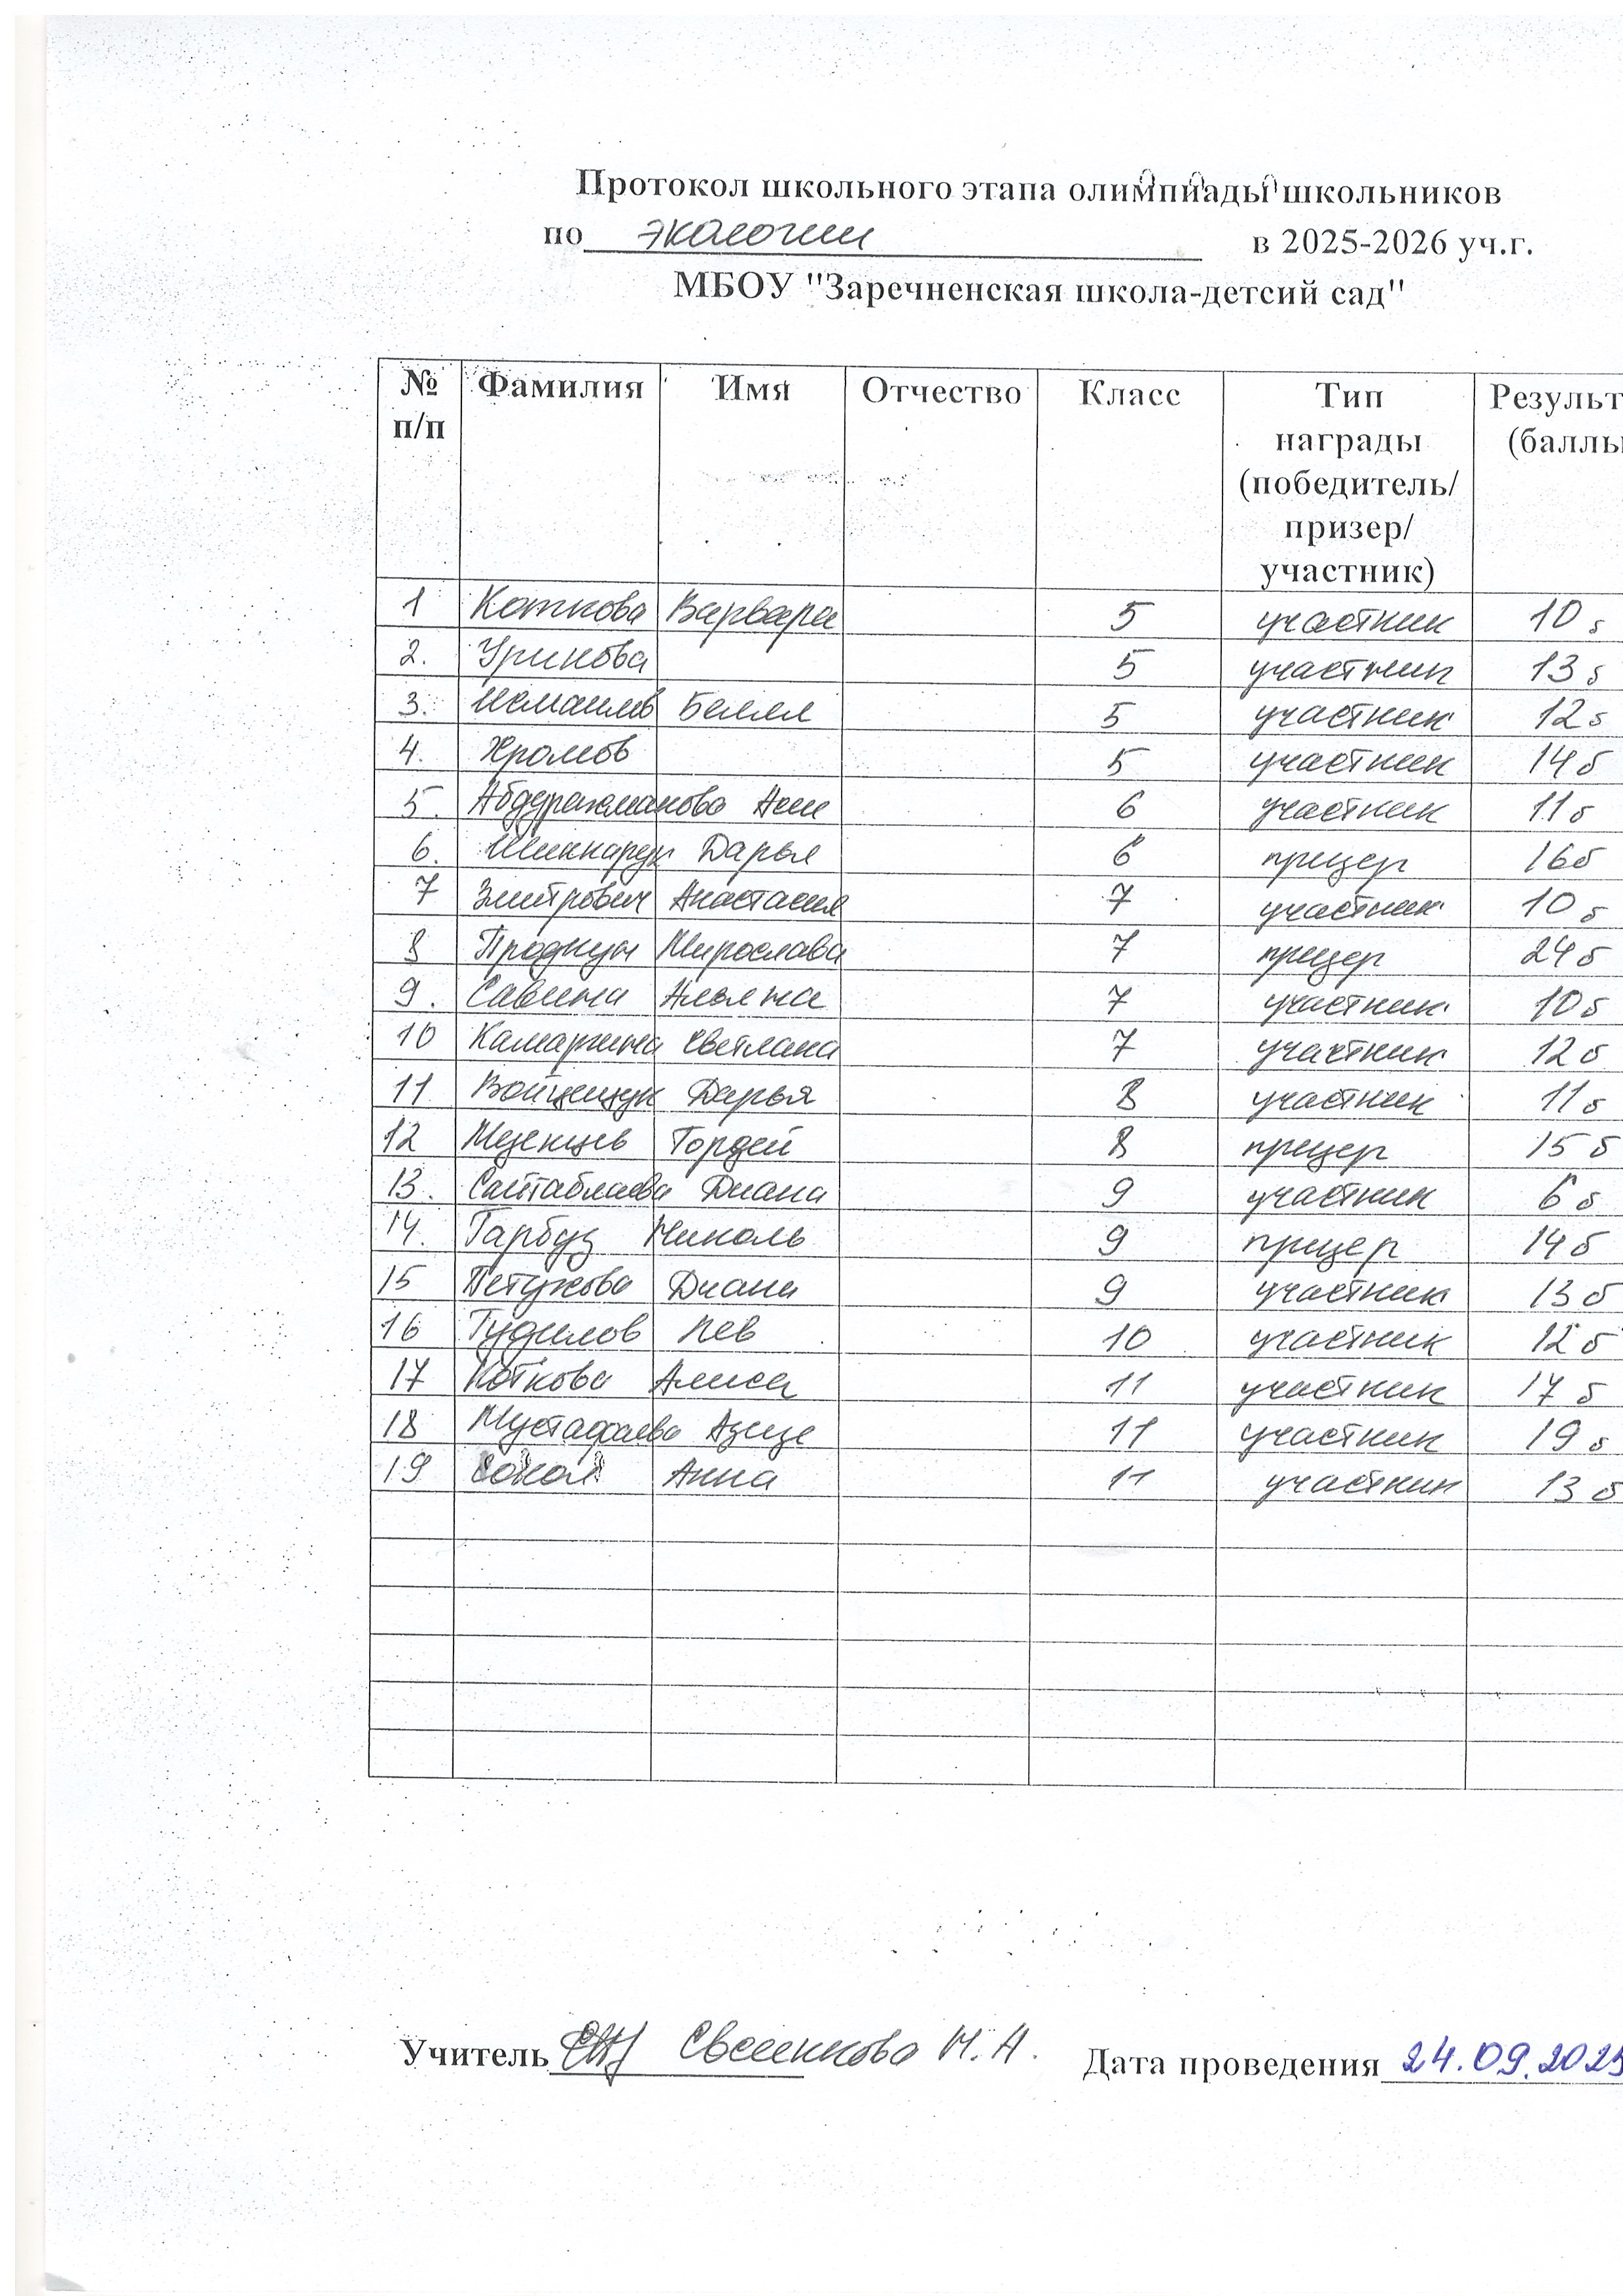 Протокол школьного этапа олимпиады школьников
по экологии в 2025-2026 уч.г.
МБОУ "Заречненская школа-детсий сад"
№ п/п Фамилия Имя Отчество Класс Тип награды (победитель/ призер/ участник) Результ (баллы
1 Коткова Варвара 5 участник 10 б
2. Урикова 5 участник 13 б
3. Исмаилов Белял 5 участник 12 б
4. Хромов 5 участник 14 б
5. Абдурахманова Асие 6 участник 11 б
6. Дарья 6 призер 16 б
7 Змитрович Анастасия 7 участник 10 б
8 Мирослава 7 призер 24 б
9. Савина Альяна 7 участник 10 б
10 Камаргина Светлана 7 участник 12 б
11 Войцещук Дарья 8 участник 11 б
12 Мезенцев Гордей 8 призер 15 б
13. Саттаблаева Диана 9 участник 6 б
14. Гарбуз Николь 9 призер 14 б
15 Петухова Диана 9 участник 13 б
16 Гудилов Лев 10 участник 12 б
17 Коткова Алиса 11 участник 17 б
18 Мустафаева Азизе 11 участник 19 б
19 Сокол Анна 11 участник 13 б
Учитель Свешникова Н.А. Дата проведения 24.09.2025